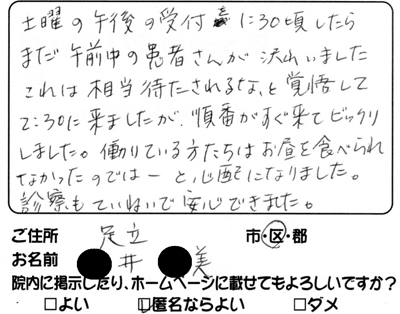 土曜の午後の受付に30頃したら
まだ午前中の患者さんが沢山いました
これは相当待たされるな、と覚悟して
2:30に来ましたが、順番がすぐ来てビックリ
しました。働いている方たちはお昼を食べられ
なかったのでは－と心配になりました。
診察もていねいで安心できました。
ご住所 足立 市・区・郡
お名前 井 美
院内に掲示したり、ホームページに載せてもよろしいですか?
□よい □匿名ならよい □ダメ